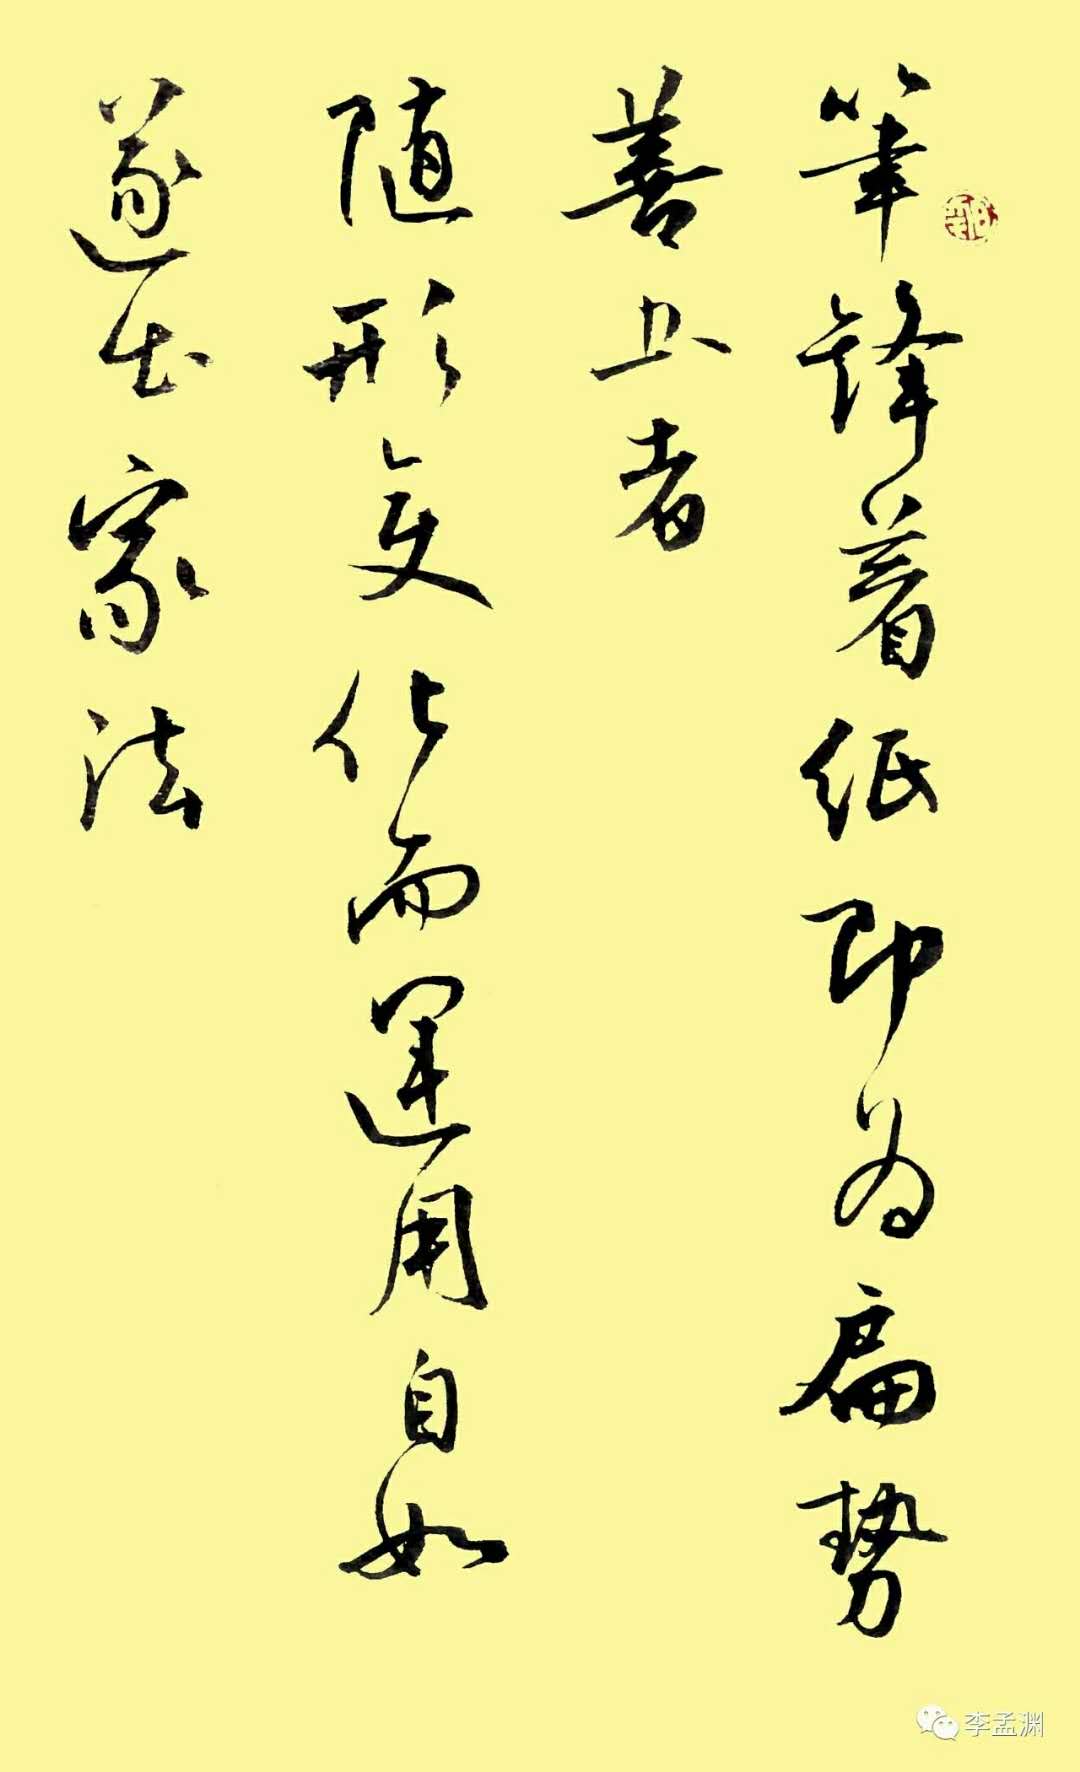 筆锋着纸即为扁势
善书者
随形变化而运用自如
遂家法
李孟渊